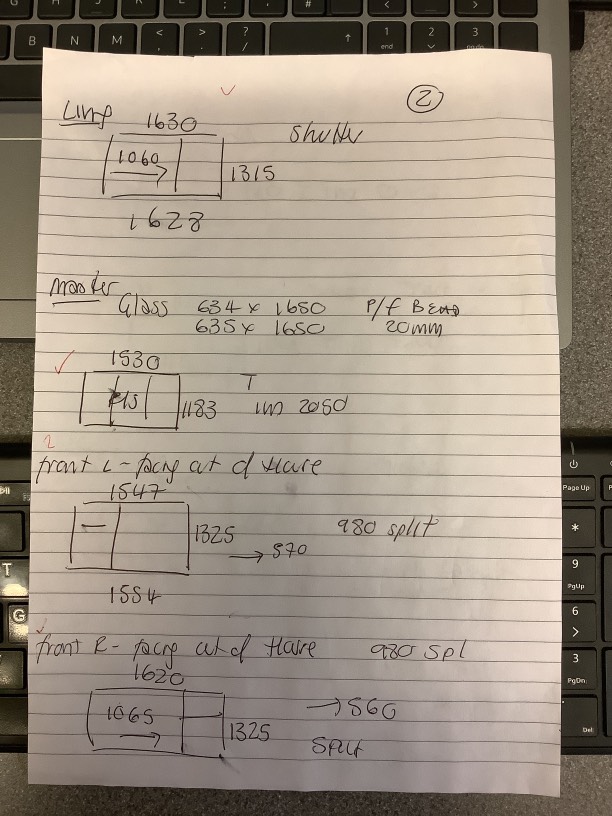 B N M < , > . ? / ↑ 1 end 2 3
2
Living
1630
Shutter
1060
1315
1628
Master
Glass 634 x 1650 P/f Bead
635 x 1650 20mm
1530
1183
T
2050
front L - facing out of House
1547
1325
980 split
→ 570
1554
front R - facing out of House 980 spl
1620
1065
1325
→ 560
Split
Page Up
*
9
PgUp
6
>
3
PgDn
Del
T
G